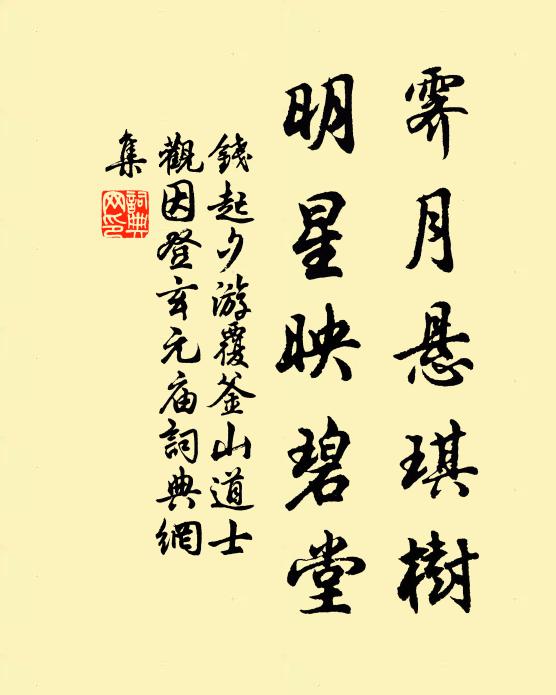 霁月悬琪樹
明星映碧堂
錢起夕游覆釜山道士
觀因登玄元庙詞典網
集
詞典网印